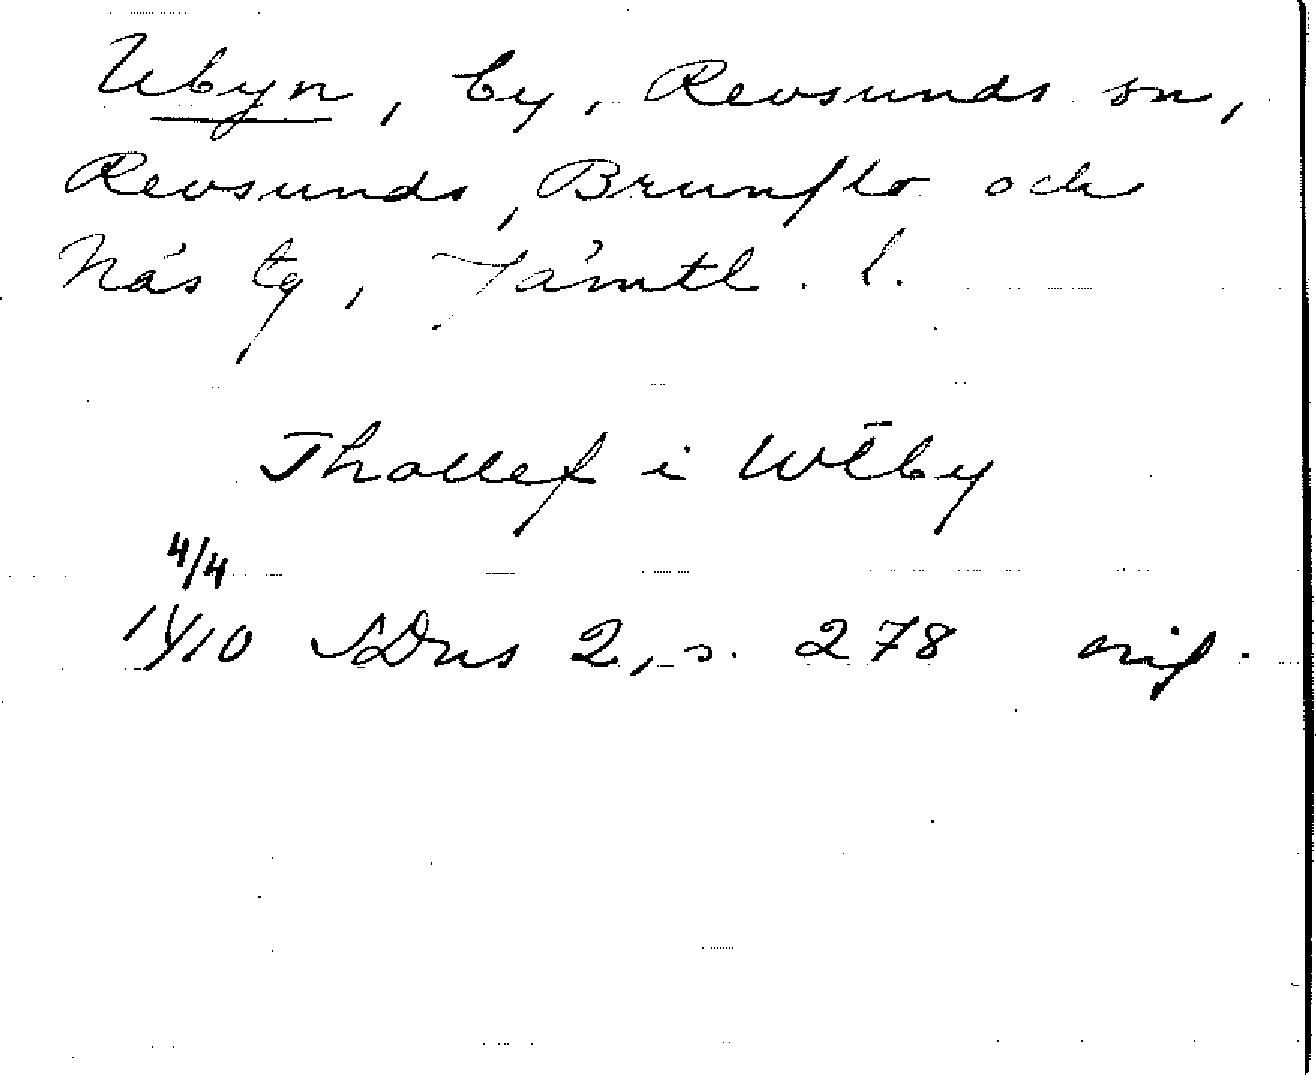 Ubyn, by, Revsunds sn,
Revsunds, Brunflo och
Näs tg, Jämtl. l.
Thollef i Wtby
4/4
1410 SDns 2, s. 278 orig.